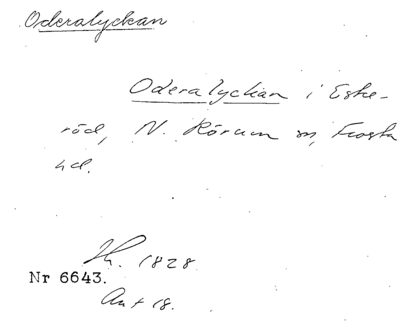 Oderalyckan
Oderalyckan i Eske-
röd, N. Rörum sn, Frosta
hd.
Th. 1828
Nr 6643.
Ant 18.